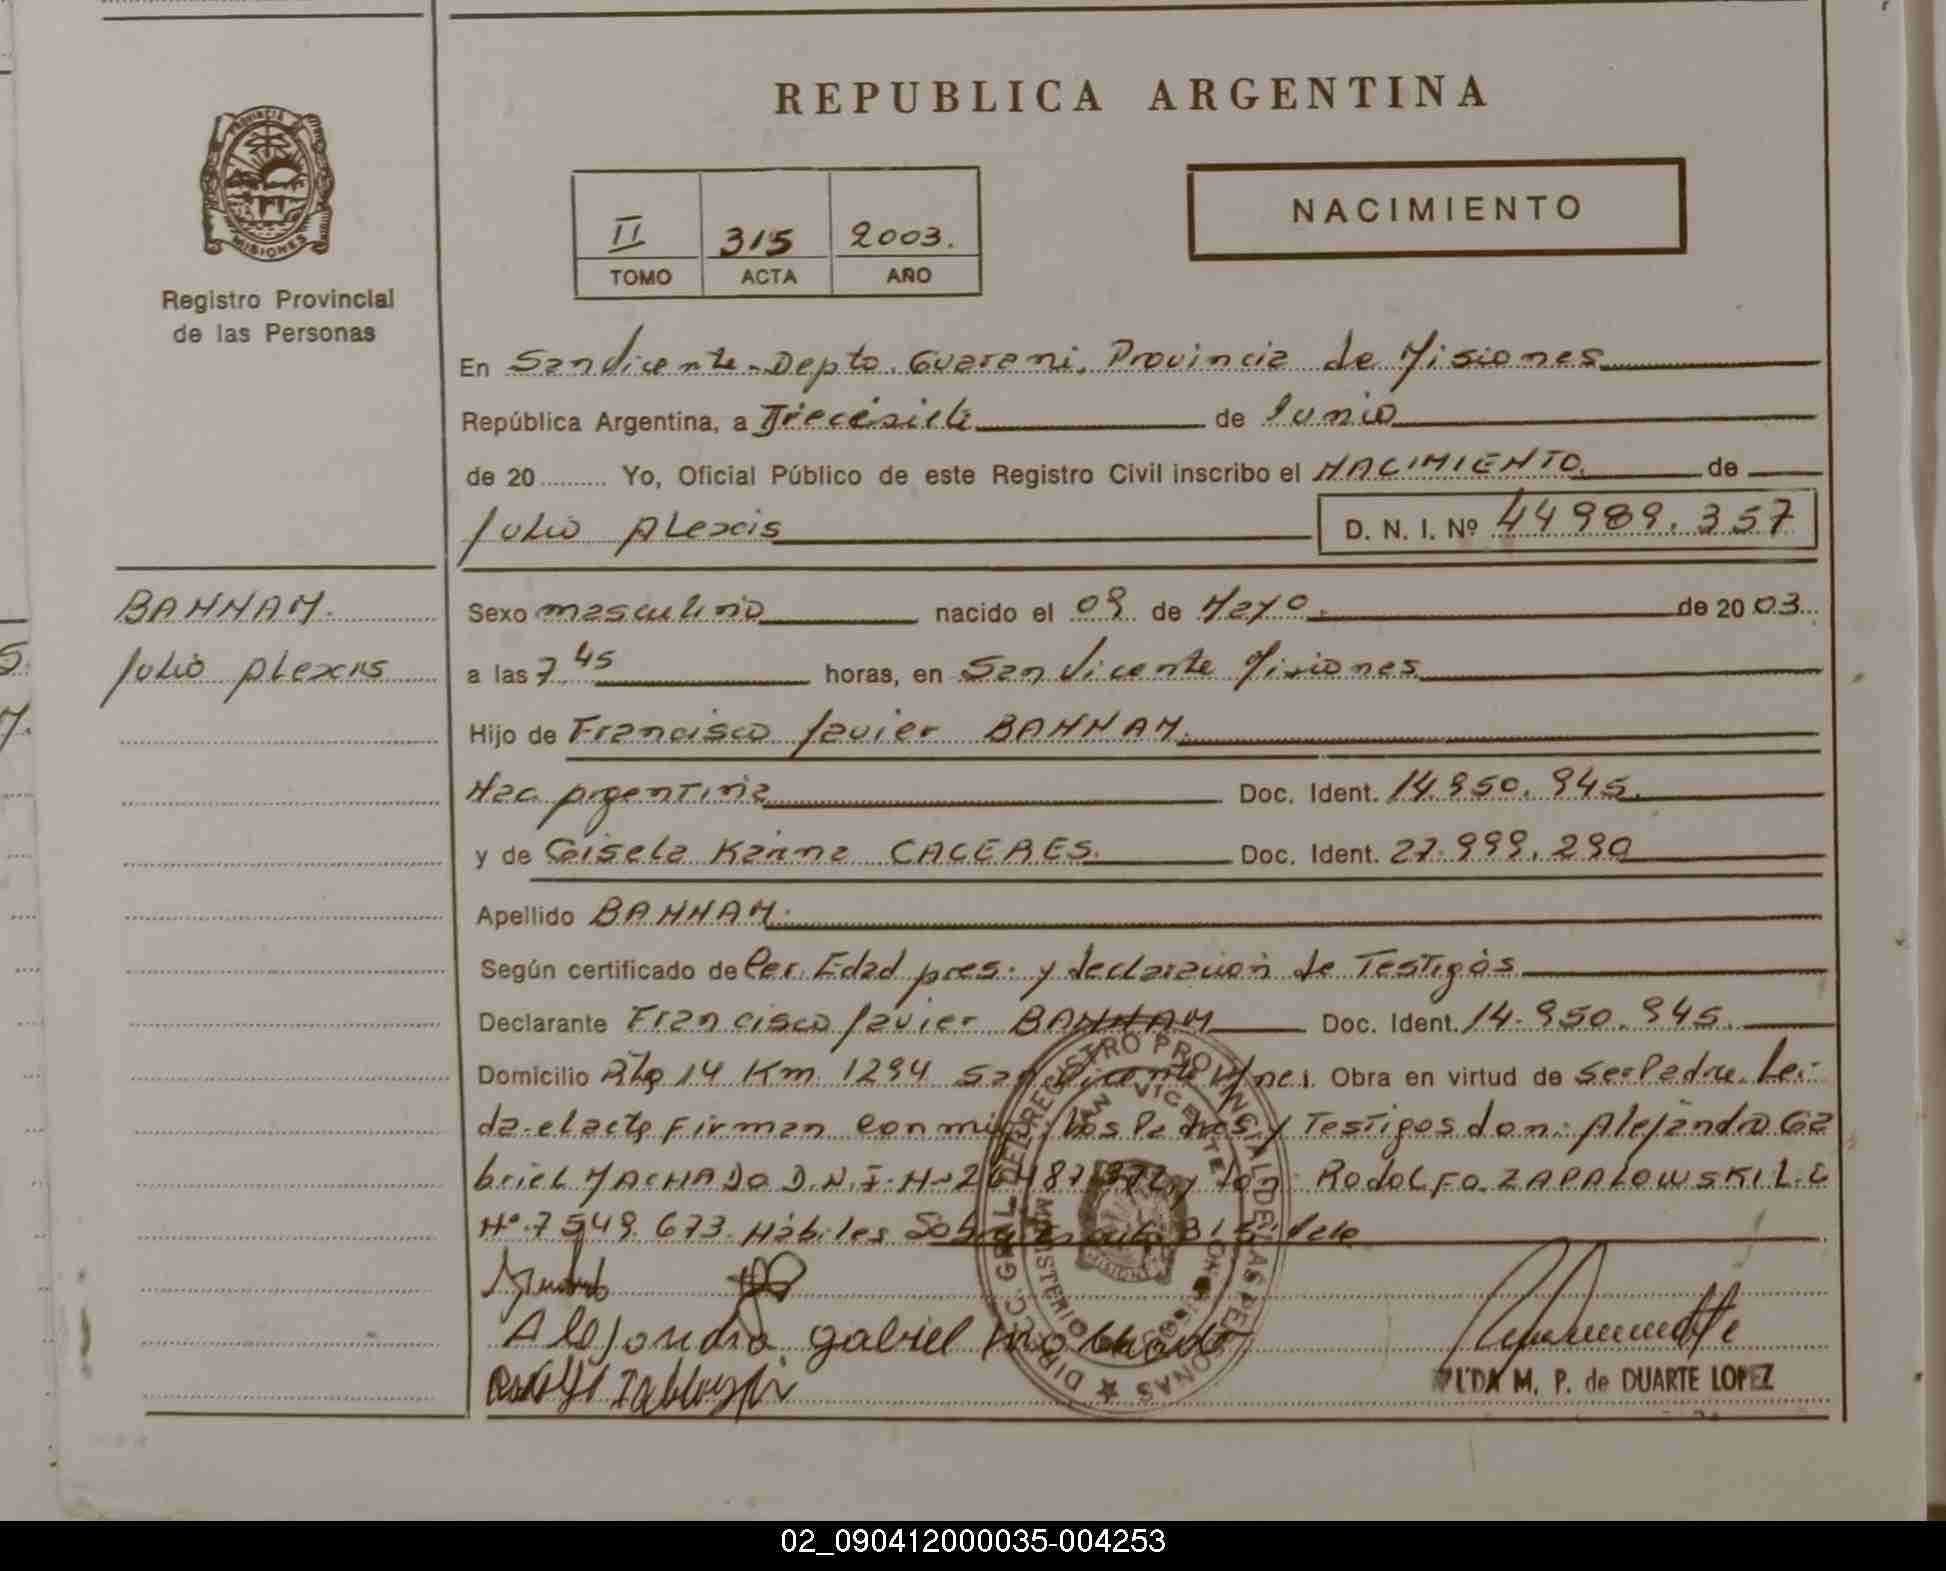 REPUBLICA ARGENTINA
PROVINCIA DE
MISIONES
Registro Provincial
de las Personas
II 315 2003.
TOMO ACTA AÑO
NACIMIENTO
En San Vicente. Depto. Guarani. Provincia de Misiones
República Argentina, a Diecisiete de Junio
de 20 Yo, Oficial Público de este Registro Civil inscribo el NACIMIENTO de
Julio Alexis D. N. I. Nº 44989.357
BANNAM.
Julio Alexis
Sexo masculino nacido el 09 de Mayo. de 2003
a las 7 45 horas, en San Vicente Misiones
Hijo de Francisco Javier BANNAM.
Nac. Argentina Doc. Ident. 14.950.945.
y de Gisela Karina CACERES. Doc. Ident. 27.999.290
Apellido BANNAM.
Según certificado de Per. Edad pres. y declaración de Testigos
Declarante Francisco Javier BANNAM Doc. Ident. 14.950.945.
Domicilio Rta 14 Km 1294 San Vicente Mnes. Obra en virtud de Ser Padre. Lei-
da el acta Firman conmigo, Los Padres y Testigos don: Alejandro Ga
briel MACHADO D.N.I. Nº y don: Rodolfo ZAPALOWSKI L.E
Nº 7549.673. Hábiles
Alejandro gabriel
DIREC. GRAL. DEL REGISTRO PROVINCIAL DE LAS PERSONAS
SAN VICENTE
MINISTERIO
MISIONES
M. P. de DUARTE LOPEZ
02_090412000035-004253